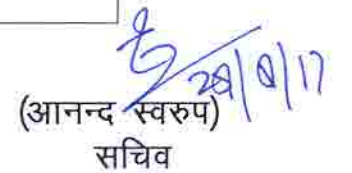 28/8/17
(आनन्द स्वरुप)
सचिव